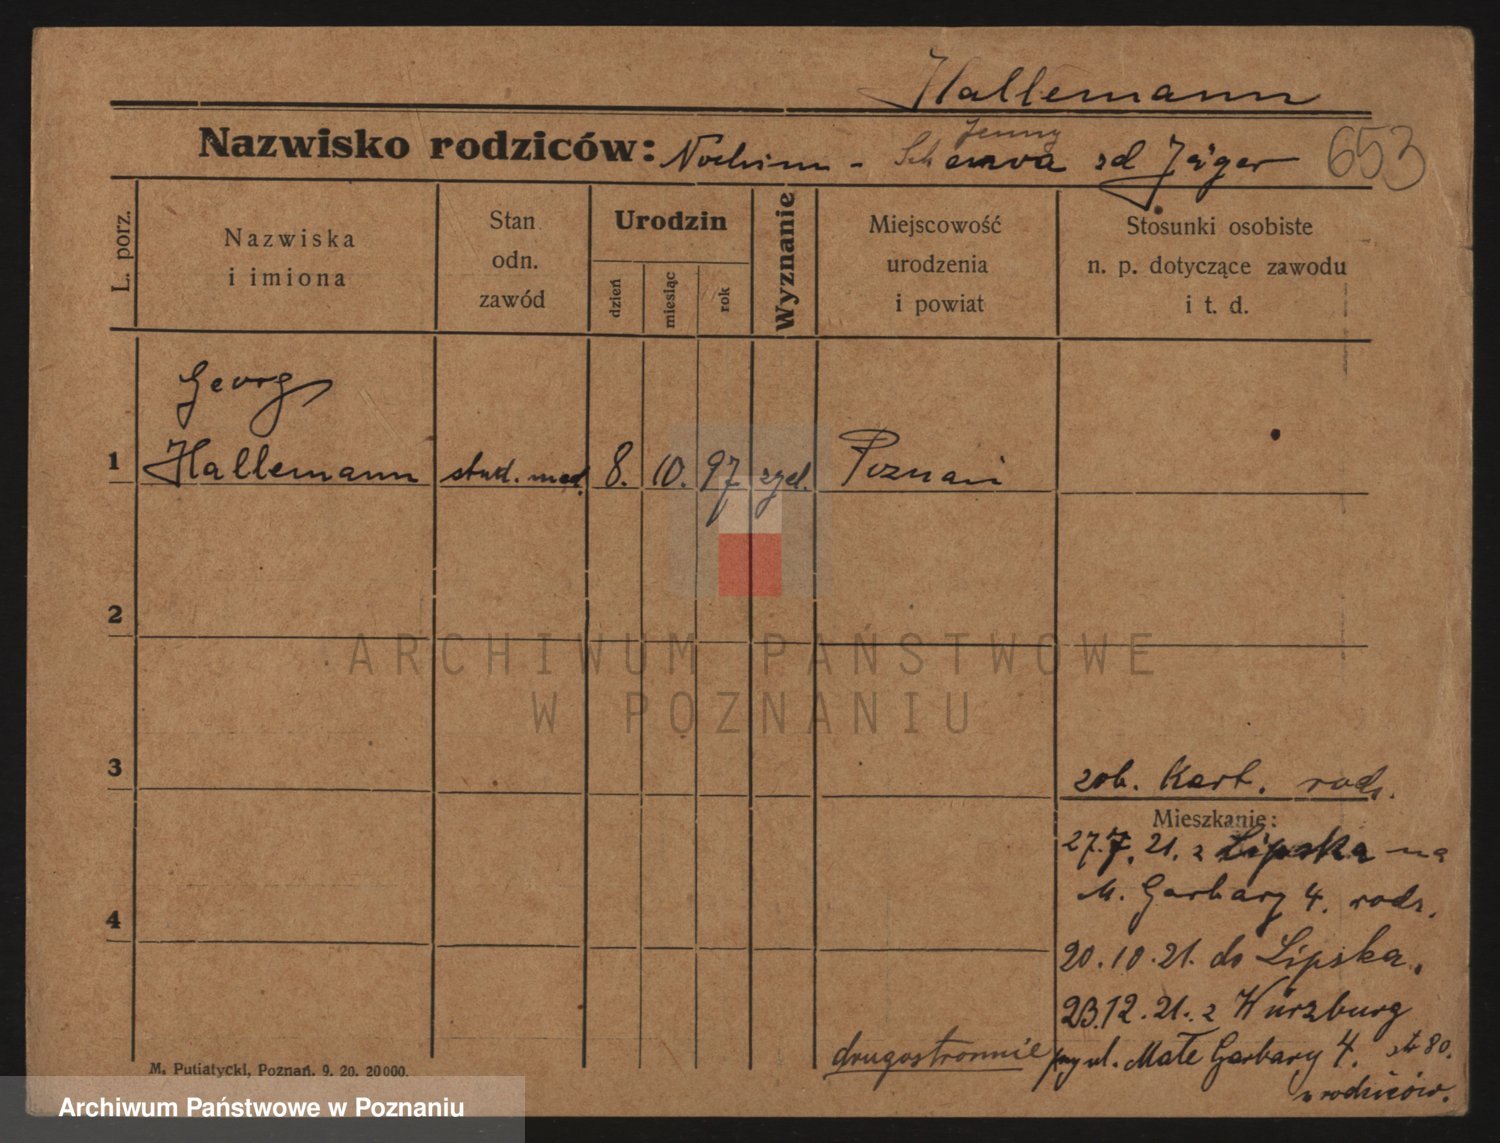 Hallemann
Jenny
Nazwisko rodziców: Nochim - zd Jäger 653
L. porz.
Nazwiska
i imiona
Stan
odn.
zawód
Urodzin
dzień
miesiąc
rok
Wyznanie
Miejscowość
urodzenia
i powiat
Stosunki osobiste
n. p. dotyczące zawodu
i t. d.
Georg
1 Hallemann stud. med. 8. 10. 97 Poznań
2
ARCHIWUM PAŃSTWOWE
W POZNANIU
3
zob. Kart. rodz.
Mieszkanie:
27.7.21. z Lipska na
M. Garbary 4. rodz.
4
20.10.21. do Lipska.
23.12.21. z Würzburg
drugostronnie przy ul. Małe Garbary 4. str 80.
u rodziców.
M. Putiatycki, Poznań. 9. 20. 20000.
Archiwum Państwowe w Poznaniu